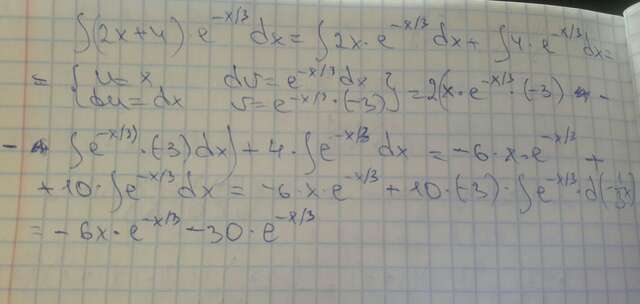 ∫(2x+4)·e^(-x/3) dx = ∫2x·e^(-x/3) dx + ∫4·e^(-x/3) dx =
= {u = x dv = e^(-x/3) dx
du = dx v = e^(-x/3)·(-3)} = 2(x·e^(-x/3)·(-3) -
- ∫e^(-x/3)·(-3)dx) + 4·∫e^(-x/3) dx = -6·x·e^(-x/3) +
+ 10·∫e^(-x/3) dx = -6·x·e^(-x/3) + 10·(-3)·∫e^(-x/3)·d(-1/3x)
= -6x·e^(-x/3) - 30·e^(-x/3)